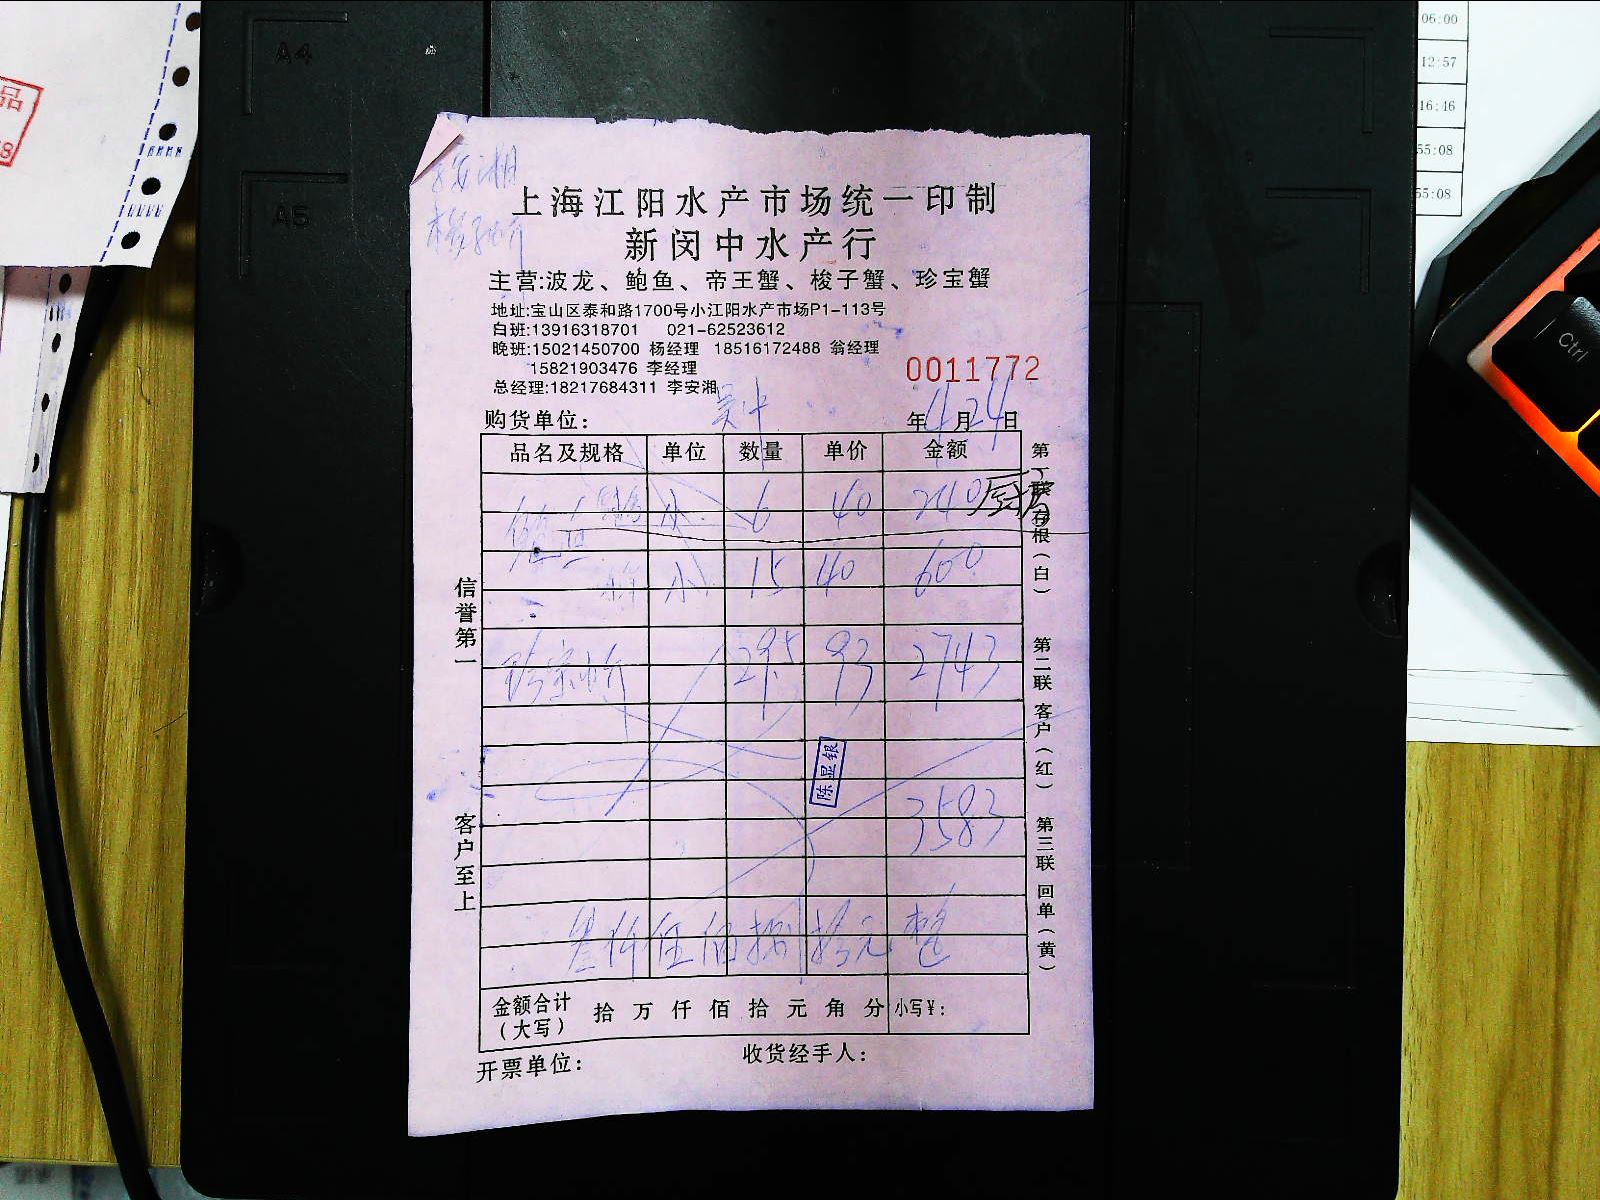 A4
A5
品
06:00
12:57
16:46
55:08
55:08
Ctrl
上海江阳水产市场统一印制
新闵中水产行
主营:波龙、鲍鱼、帝王蟹、梭子蟹、珍宝蟹
地址:宝山区泰和路1700号小江阳水产市场P1-113号
白班:13916318701 021-62523612
晚班:15021450700 杨经理 18516172488 翁经理
15821903476 李经理
总经理:18217684311 李安湘
0011772
购货单位: 年 4月24日
品名及规格 单位 数量 单价 金额
鲍鱼 小 6 40 240 厨房
小 15 40 600
珍宝 29.5 93 2743
陈显银
3583
叁仟伍佰捌拾元整
金额合计(大写) 拾万仟佰拾元角分 小写¥:
开票单位: 收货经手人:
信誉第一
客户至上
第一联存根(白)
第二联客户(红)
第三联回单(黄)